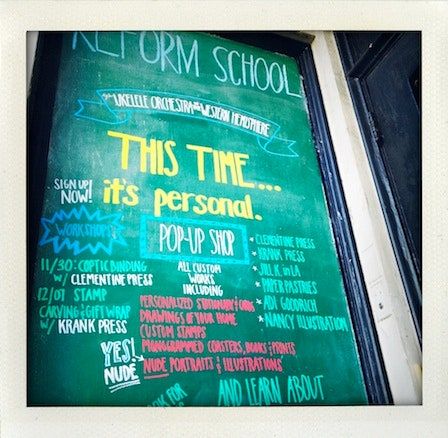 REFORM SCHOOL
UKELELE ORCHESTRA OF THE WESTERN HEMISPHERE
THIS TIME...
it's personal.
SIGN UP
NOW!
WORKSHOPS!
11/30: COPTIC BINDING
W/ CLEMENTINE PRESS
12/01 STAMP
CARVING & GIFT WRAP
W/ KRANK PRESS
POP-UP SHOP
ALL CUSTOM
WORKS
INCLUDING
PERSONALIZED STATIONERY & CARDS
DRAWINGS OF YOUR HOME
CUSTUM STAMPS
MONOGRAMMED COASTERS, BOOKS & PRINTS
NUDE PORTRAITS & ILLUSTRATIONS
YES!
NUDE
* CLEMENTINE PRESS
* KRANK PRESS
* JILL K. in LA
* PAPER PASTRIES
* ADI GOODRICH
* NANCY ILLUSTRATION
FOR
AND LEARN ABOUT